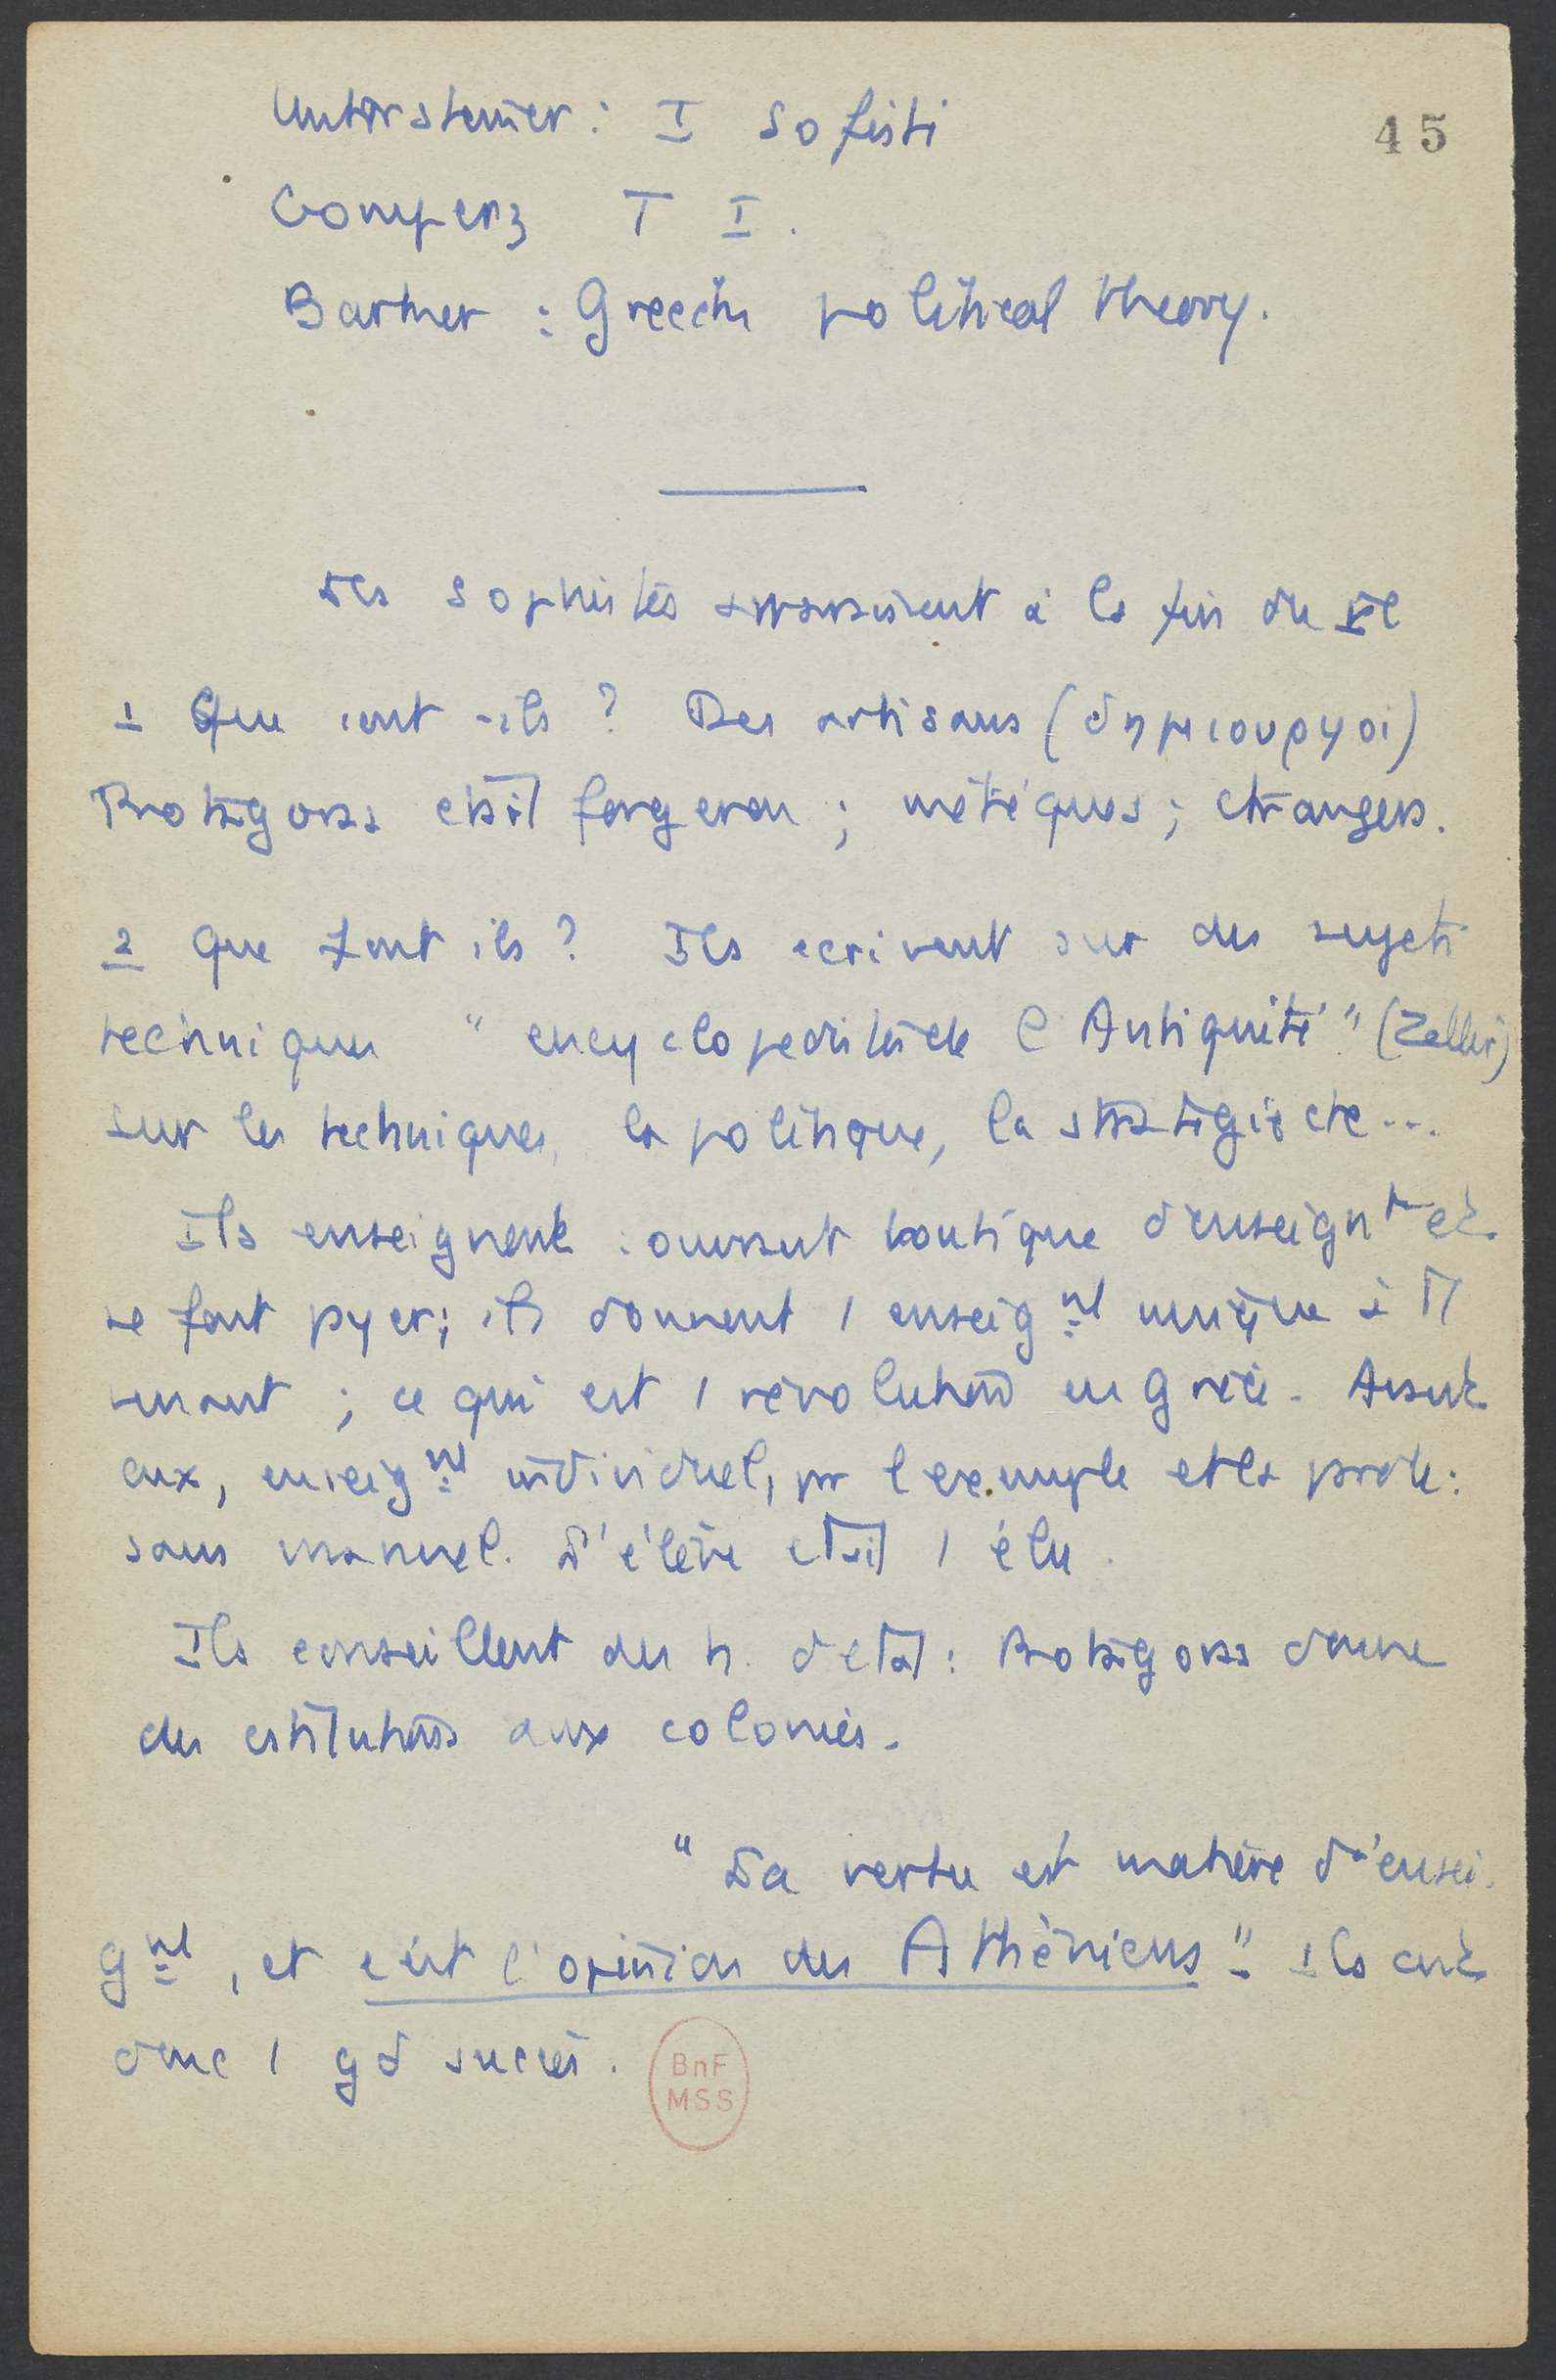 Untersteiner : I Sofisti
45
Gomperz T I.
Barker : Greek political theory.
Les sophistes apparaissent à la fin du Ve
1 Que sont-ils ? Des artisans (δημιουργοι)
Protagoras était forgeron ; métèques ; étrangers.
2 Que font ils ? Ils écrivent sur des sujets
techniques "encyclopédistes de l'Antiquité" (Zeller)
sur les techniques, la politique, la stratégie etc...
Ils enseignent : ouvrent boutique d'enseignt et
se font payer ; ils donnent 1 enseignt unique à tt
venant ; ce qui est 1 révolution en Grèce. Avant
eux, enseignt individuel, pr l'exemple et la parole :
sans manuel. L'élève était 1 élu.
Ils conseillent des h. d'état : Protagoras donne
des cstitutions aux colonies.
"La vertu est matière d'ensei-
gnt, et c'est l'opinion des Athéniens". Ils ont
donc 1 gd succès.
BnF
MSS